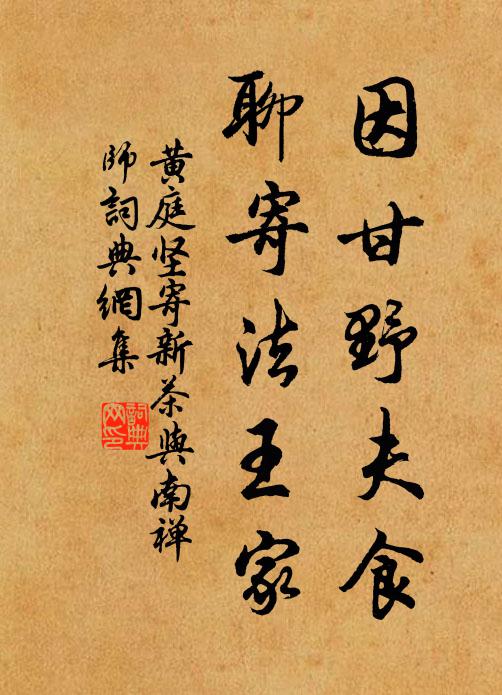 因甘野夫食
聊寄法王家
黄庭坚寄新茶與南禅
师詞典網集
詞典
网印